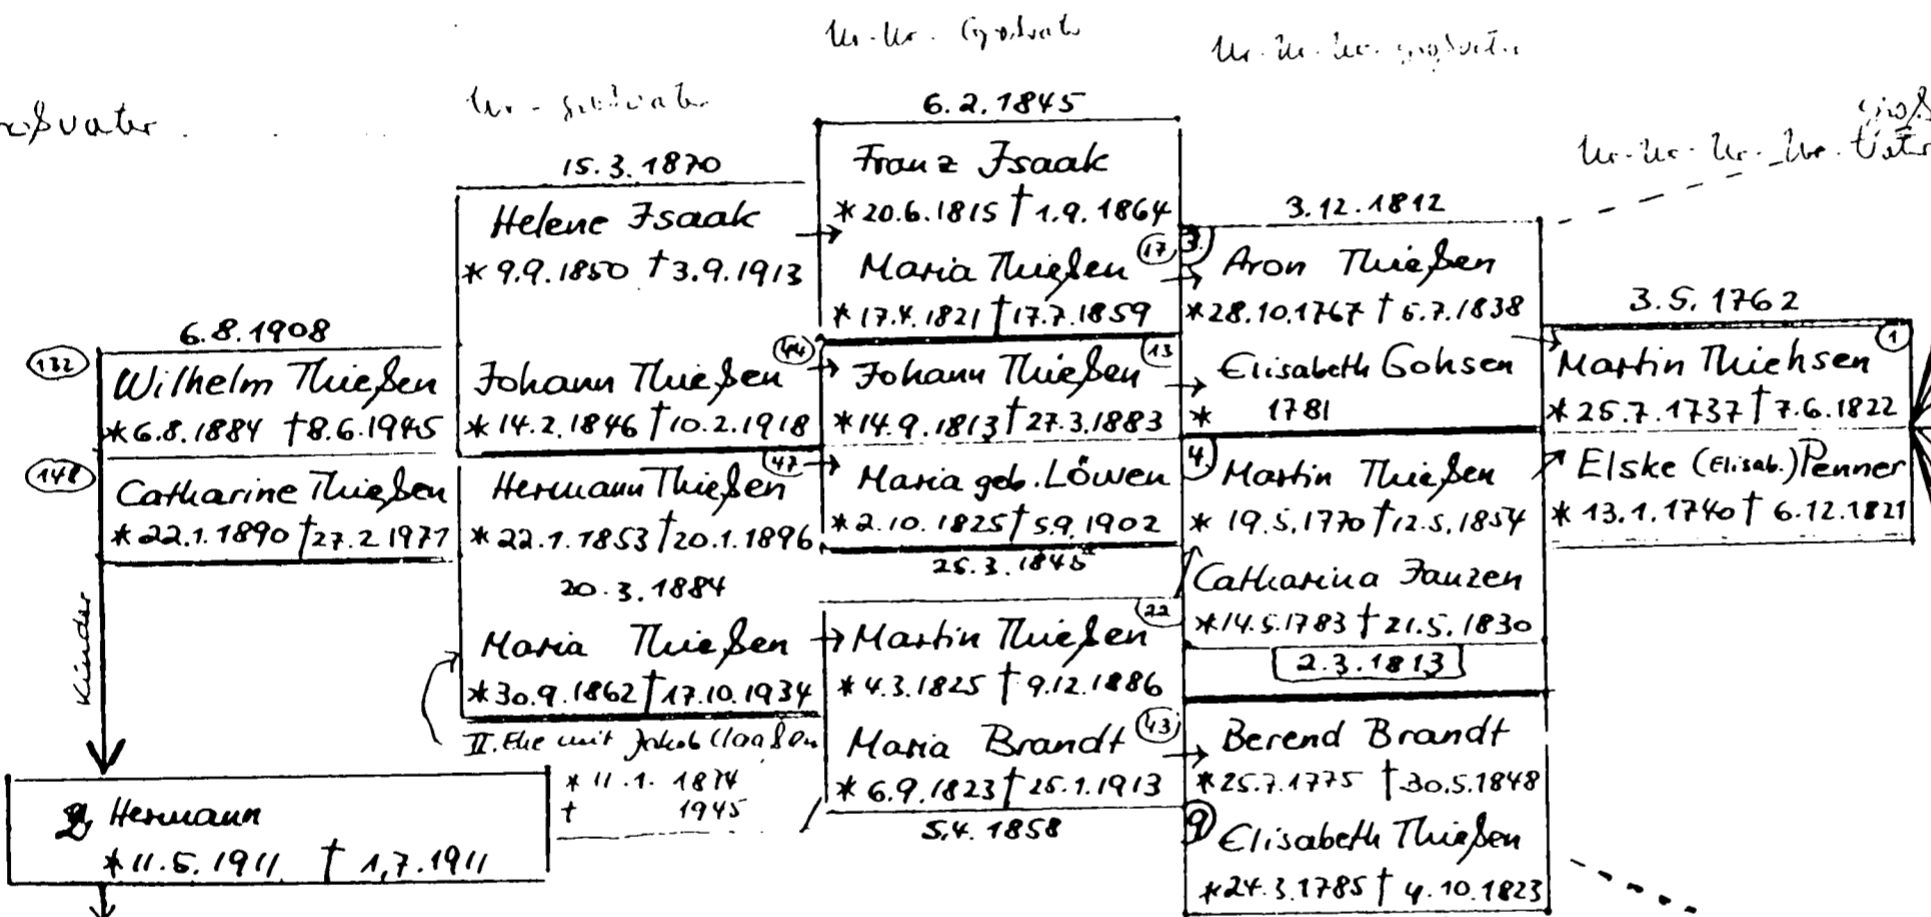 Ur-Ur. Großvater
Ur-Ur-Ur-großvater
ßvater
Ur-großvater
Groß
Ur-Ur-Ur-Ur-Vater
6.8.1908
132 Wilhelm Thießen
*6.8.1884 †8.6.1945
148 Catharine Thießen
*22.1.1890 †27.2.1971
Kinder
Hermann
*11.5.1911 † 1.7.1911
15.3.1870
Helene Isaak
*9.9.1850 †3.9.1913
Johann Thießen 44
*14.2.1846 †10.2.1918
Hermann Thießen 47
*22.1.1853 †20.1.1896
20.3.1884
Maria Thießen
*30.9.1862 †17.10.1934
II. Ehe mit Jakob Claaßen
*11.1.1874
† 1945
6.2.1845
Franz Isaak
*20.6.1815 †1.9.1864
Maria Thießen 17
*17.4.1821 †17.7.1859
Johann Thießen 13
*14.9.1813 †27.3.1883
Maria geb. Löwen
*2.10.1825 †5.9.1902
25.3.1845
Martin Thießen 22
*4.3.1825 †9.12.1886
Maria Brandt 43
*6.9.1823 †25.1.1913
5.4.1858
3.12.1812
3. Aron Thießen
*28.10.1767 †5.7.1838
Elisabeth Gohsen
* 1781
4. Martin Thießen
*19.5.1770 †12.5.1854
Catharina Janzen
*14.5.1783 †21.5.1830
2.3.1813
Berend Brandt
*25.7.1775 †30.5.1848
9 Elisabeth Thießen
*24.3.1785 †4.10.1823
3.5.1762
Martin Thiehsen 1
*25.7.1737 †7.6.1822
Elske (Elisab.) Penner
*13.1.1740 †6.12.1821